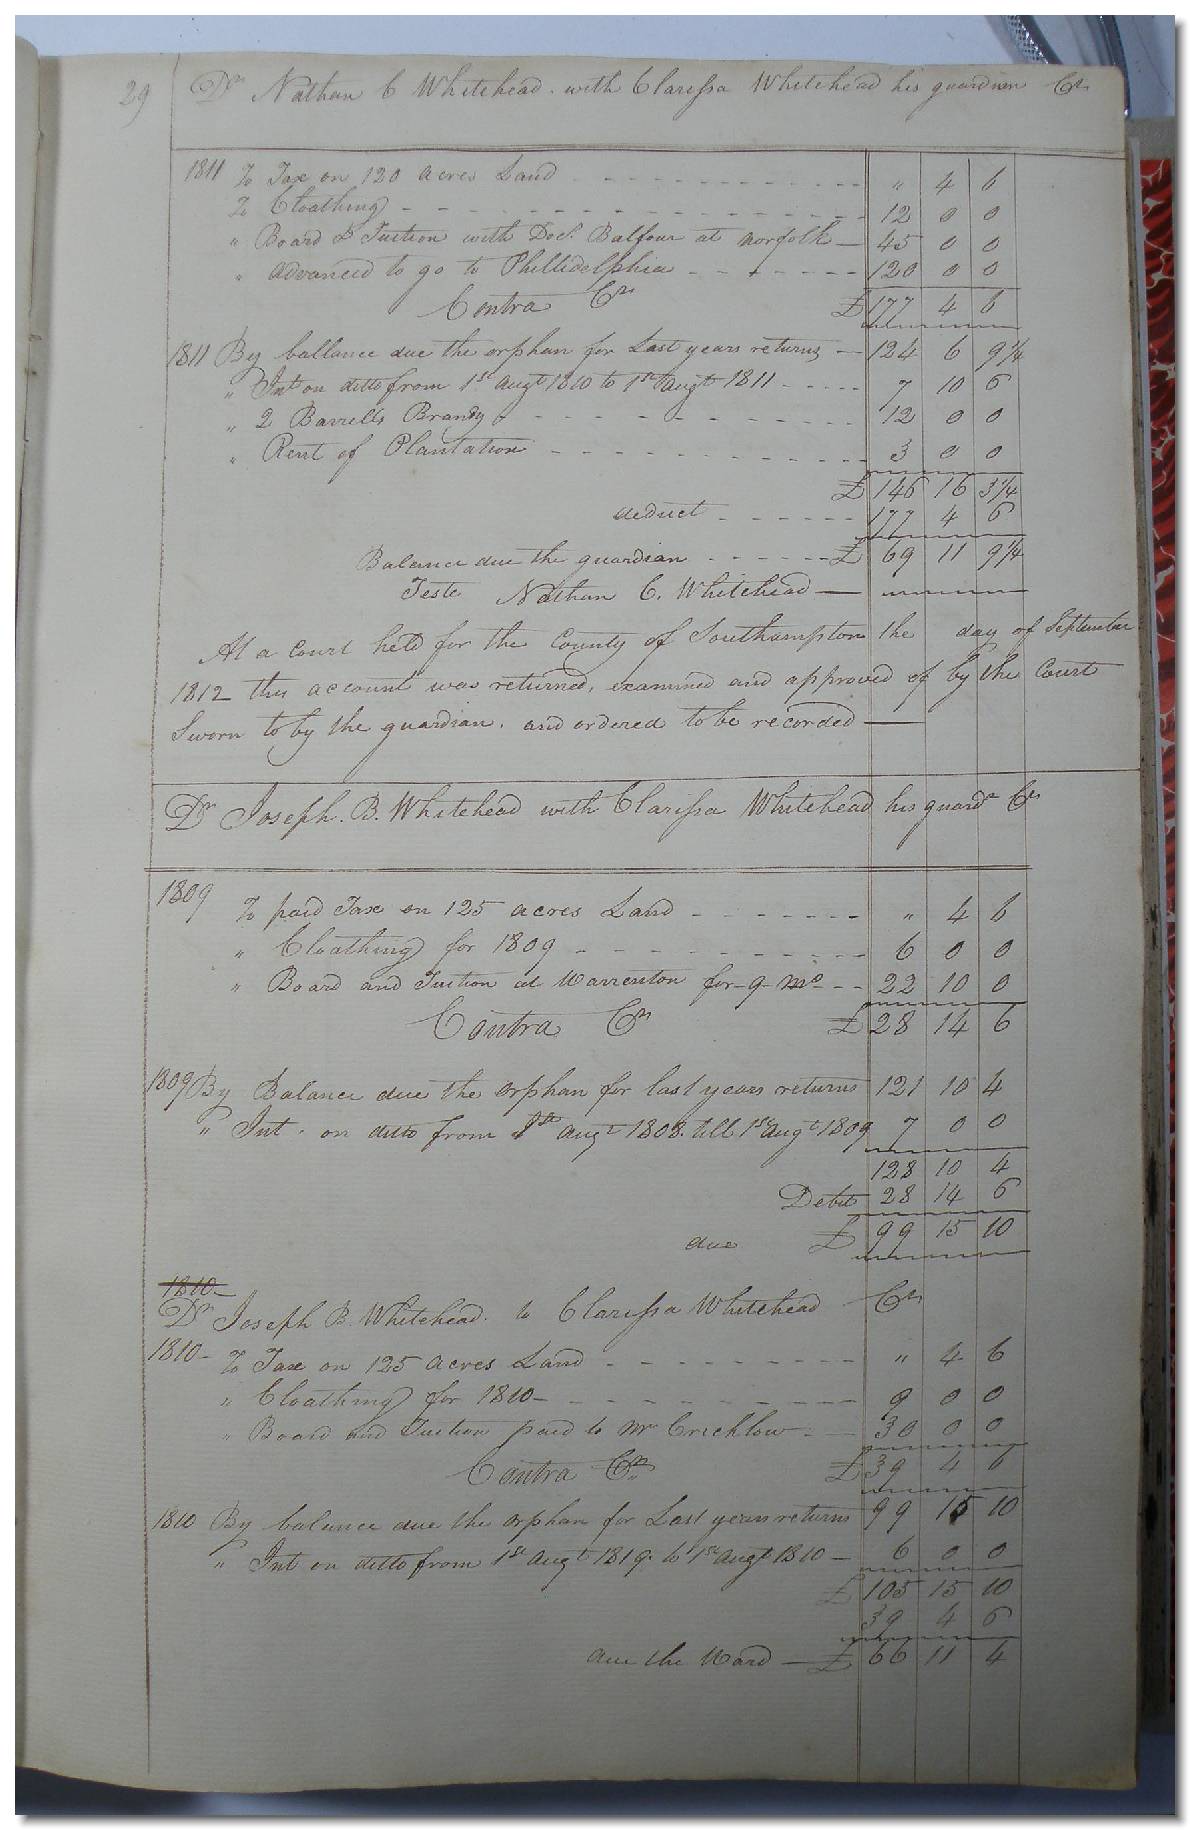 29
Dr Nathan C Whitehead. with Clarissa Whitehead his guardian Cr
1811 To Tax on 120 acres Land " 4 6
To Cloathing 12 0 0
" Board & Tuition with Doct. Balfour at Norfolk 45 0 0
" advanced to go to Phillidelphia 120 0 0
Contra Cr £ 177 4 6
1811 By ballance due the orphan for Last years returns 124 6 9 1/4
" Int on ditto from 1st Augt 1810 to 1st Augt 1811 7 10 6
" 2 Barrells Brandy 12 0 0
" Rent of Plantation 3 0 0
£ 146 16 3 1/4
deduct 177 4 6
Balance due the guardian £ 69 11 9 1/4
Teste Nathan C. Whitehead
At a Court held for the County of Southampton the day of September
1812 this account was returned, examined and approved of by the Court
Sworn to by the guardian. and ordered to be recorded
Dr Joseph. B. Whitehead with Clarissa Whitehead his guardn Cr
1809 To paid Tax on 125 acres Land " 4 6
" Cloathing for 1809 6 0 0
" Board and Tuition at Warrenton for 9 mo 22 10 0
Contra Cr £ 28 14 6
1809 By Balance due the orphan for last years returns 121 10 4
" Int. on ditto from 1st Augt 1808. till 1st Augt 1809 7 0 0
128 10 4
Debit 28 14 6
due £ 99 15 10
1810
Dr Joseph B. Whitehead. to Clarissa Whitehead Cr
1810 To Tax on 125 acres Land " 4 6
" Cloathing for 1810 9 0 0
" Board and Tuition paid to Mr Crichlow 30 0 0
Contra Cr £ 39 4 6
1810 By balance due the orphan for Last years returns 99 15 10
" Int on ditto from 1st Augt 1819. to 1st Augt 1810 6 0 0
£ 105 15 10
39 4 6
due the Ward £ 66 11 4